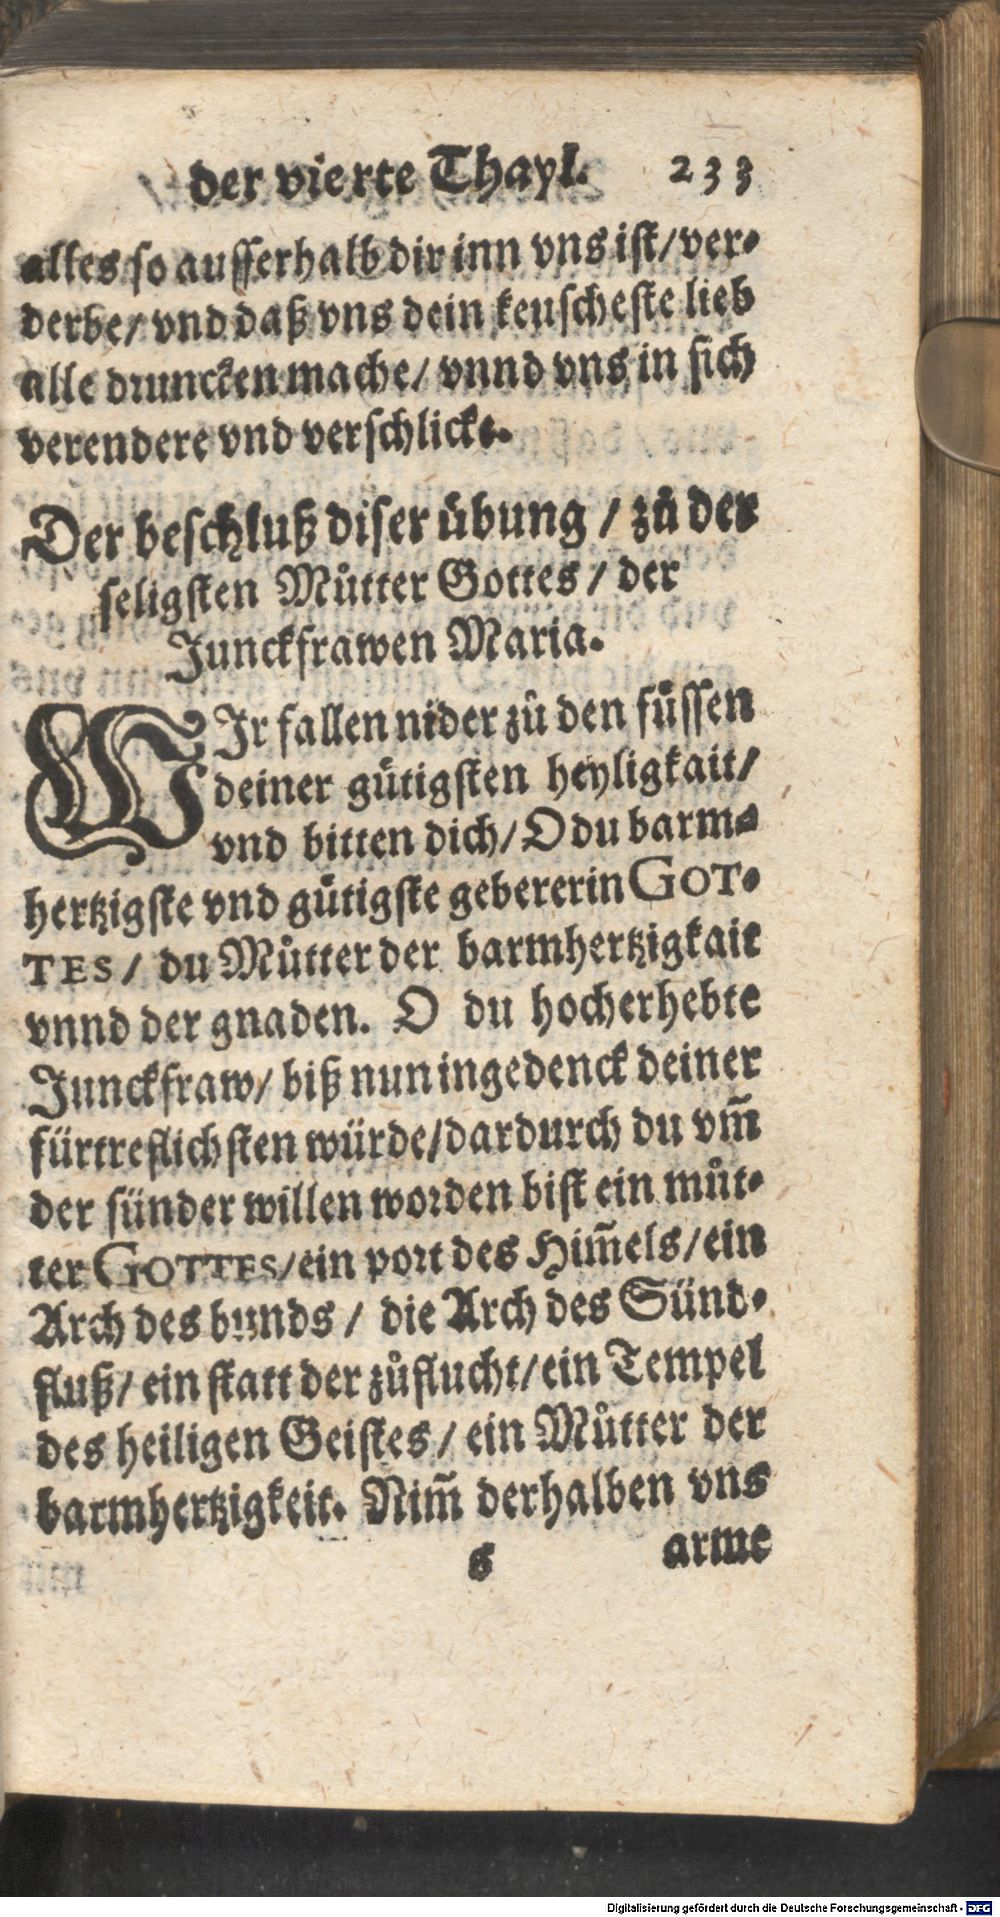 der vierte Thayl. 233
alles so ausserhalb dir inn vns ist/ ver⸗
derbe/ vnd daß vns dein keuscheste lieb
alle druncken mache/ vnnd vns in sich
verendere vnd verschlicke.
Der beschluß diser übung / zů der
seligsten Můtter Gottes / der
Junckfrawen Maria.
WIr fallen nider zů den fůssen
deiner gůtigsten heyligkait/
vnd bitten dich/ O du barm⸗
hertzigste vnd gůtigste gebererin GOT⸗
TES / du Můtter der barmhertzigkait
vnnd der gnaden. O du hocherhebte
Junckfraw/ biß nun ingedenck deiner
fürtreflichsten würde/ dardurch du vm̃
der sünder willen worden bist ein můt⸗
ter GOTTES/ ein port des Him̃els/ ein
Arch des bunds / die Arch des Sünd⸗
fluß/ ein statt der zůflucht/ ein Tempel
des heiligen Geistes / ein Můtter der
barmhertzigkeit. Nim̃ derhalben vns
s arme
Digitalisierung gefördert durch die Deutsche Forschungsgemeinschaft - DFG